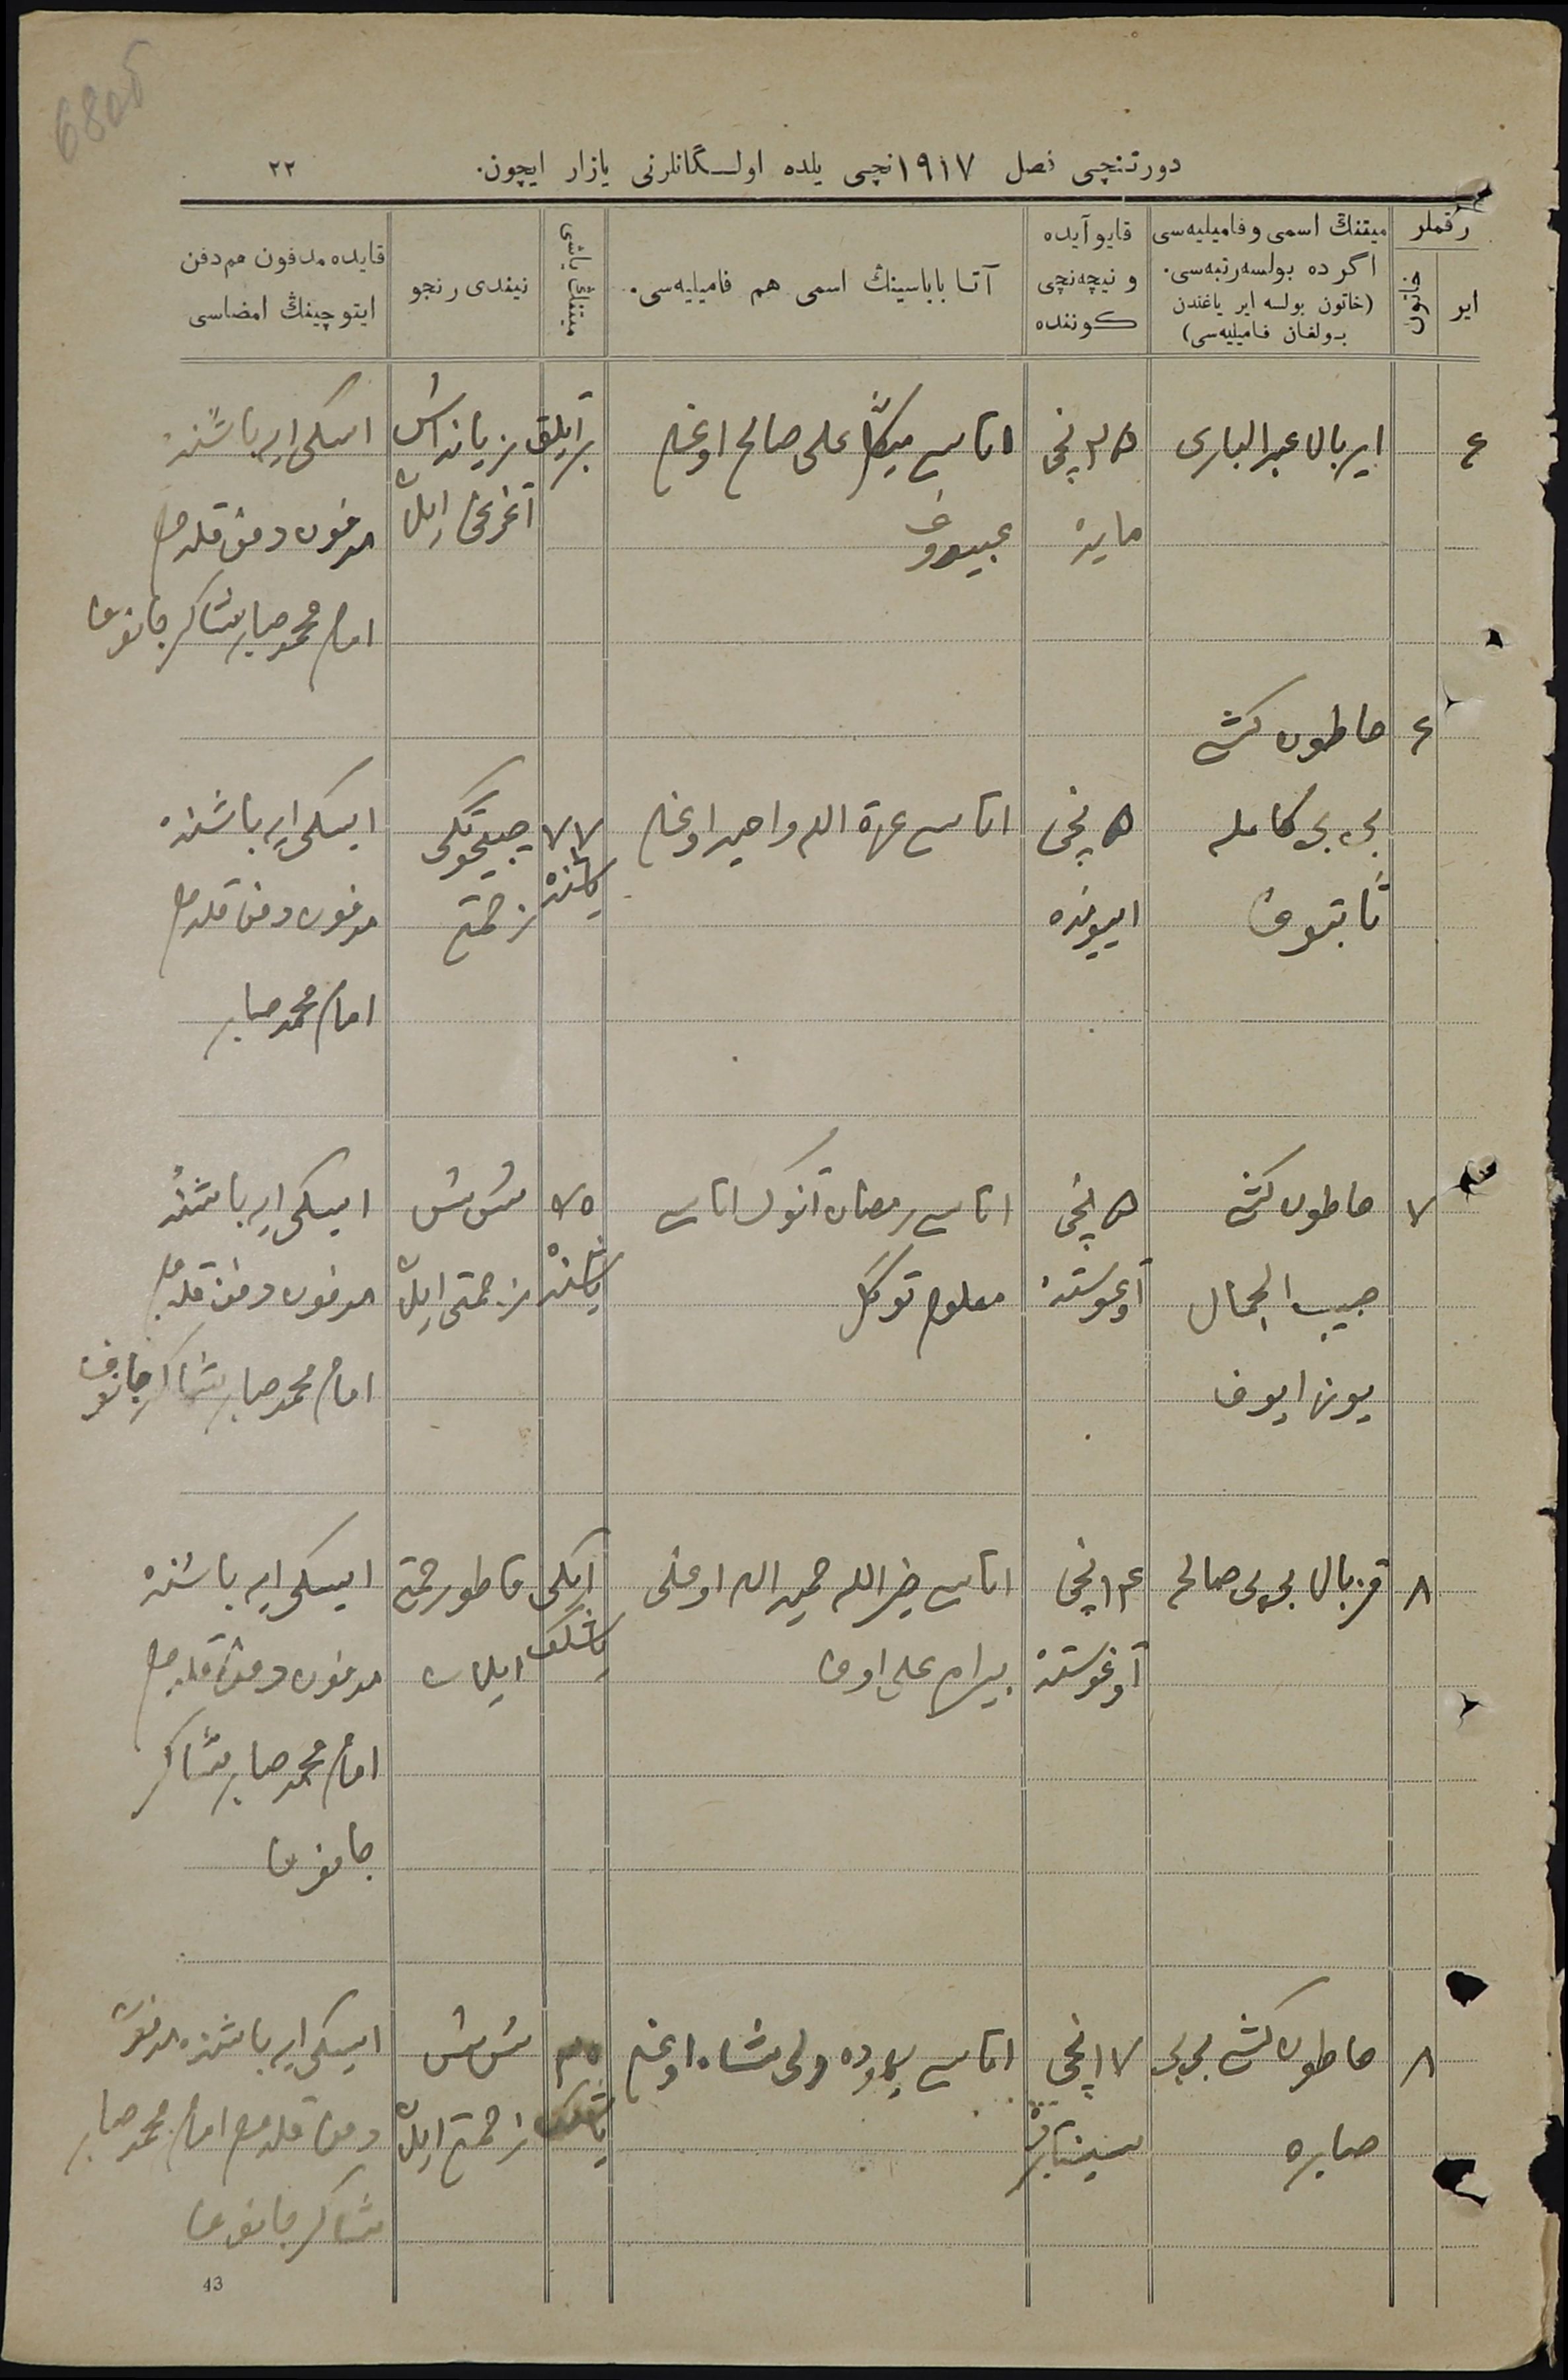 680б
دورتنچی فصل ١٩١٧نچی یلده اولـگانلرنی یازار ایچون.
٢٢
رقملر
ایر
خاتون
میتنڭ اسمی و فامیلیه‌سی
اگر ده بولسه رتبه‌سی.
(خاتون بولسه ایر یاغندن
بـولغان فـامیلیه‌سی)
قایو آیده
و نیچه‌نچی
کـوننده
آتـا باباسینڭ اسمی هم فامیلیه‌سی.
میتنڭ یاشی
نیندی رنجو
قایده مدفون هم دفن
ایتوچینڭ امضاسی
ایر بالا عبدالباری
اتاسی علی صالح اوغلی
مایده
اسکی ایر باشنده
مدفون دفن قلدم
امام محمد صابر شاکر جانوف
خاطون کشی
بی بی کامله
ثابتوف
٥ نچی
اییونده
٧٧
یاشنده
زحمتی
ایسکی ایر باشنده
مدفون دفن قلدم
امام محمد صابر
٧
خاطون کشی
حبیب الجمال
٥ نچی
آوغوستده
اتاسی رمضان آنوڭ اتاسی
معلوم توگل
٧٥
یاشنده
شش
زحمتی ایلان
ایسکی ایر باشنده
مدفون دفن قلدم
امام محمد صابر شاکر جانوف
٨
قز بالا بی بی صالحه
١٤ نچی
آوغوستده
اتاسی خیر الله حمید الله اوغلی
بیرام علی اوف
ایکی
یاشلک
ایلان
ایسکی ایر باشنده
مدفون دفن قلدم
امام محمد صابر شاکر
جانوف
٨
خاطون کشی بی بی
صابره
١٧ نچی
سینتابرده
اتاسی ولی شاه اوغلی
یاشلک
شش
زحمتی ایلان
ایسکی ایر باشنده مدفون
دفن قلدم امام محمد صابر
شاکر جانوف
43